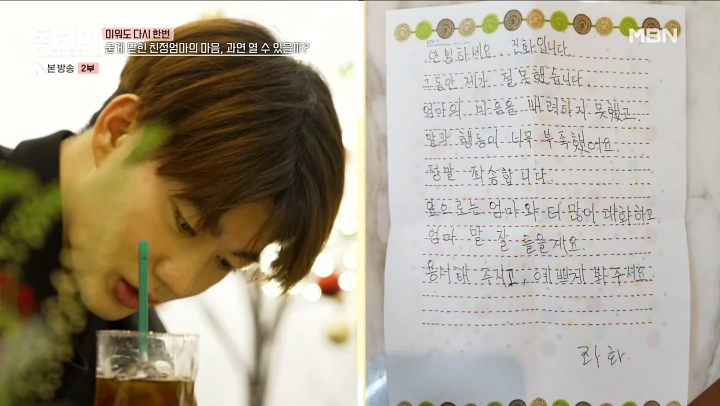 동치미
미워도 다시 한번
굳게 닫힌 친정엄마의 마음, 과연 열 수 있을까?
본 방송 2부
MBN
안녕하세요. 진화입니다.
그동안 저가 잘못했습니다.
엄마의 마음을 배려하지 못했고
말과 행동이 너무 부족했어요
정말 좌송합니다
앞으로는 엄마와 더 많이 대화하고
엄마 말 잘 들을게요
용서해 주시고, 예쁘게 봐주세요